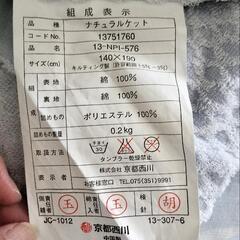 組成表示
品種 ナチュラルケット
コードNo. 13751760
13-NPI-576
サイズ(cm) 140×190
キルティング製
組成 表地 綿 100%
裏地 綿 100%
詰めもの ポリエステル 100%
詰めもの重量 0.2kg
取扱方法
タンブラー乾燥禁止
表示者 京都西川
お客様窓口 TEL.075(351)9991
玉 玉 胡
検針
JC-1012 京都西川 13-307-6
中国製